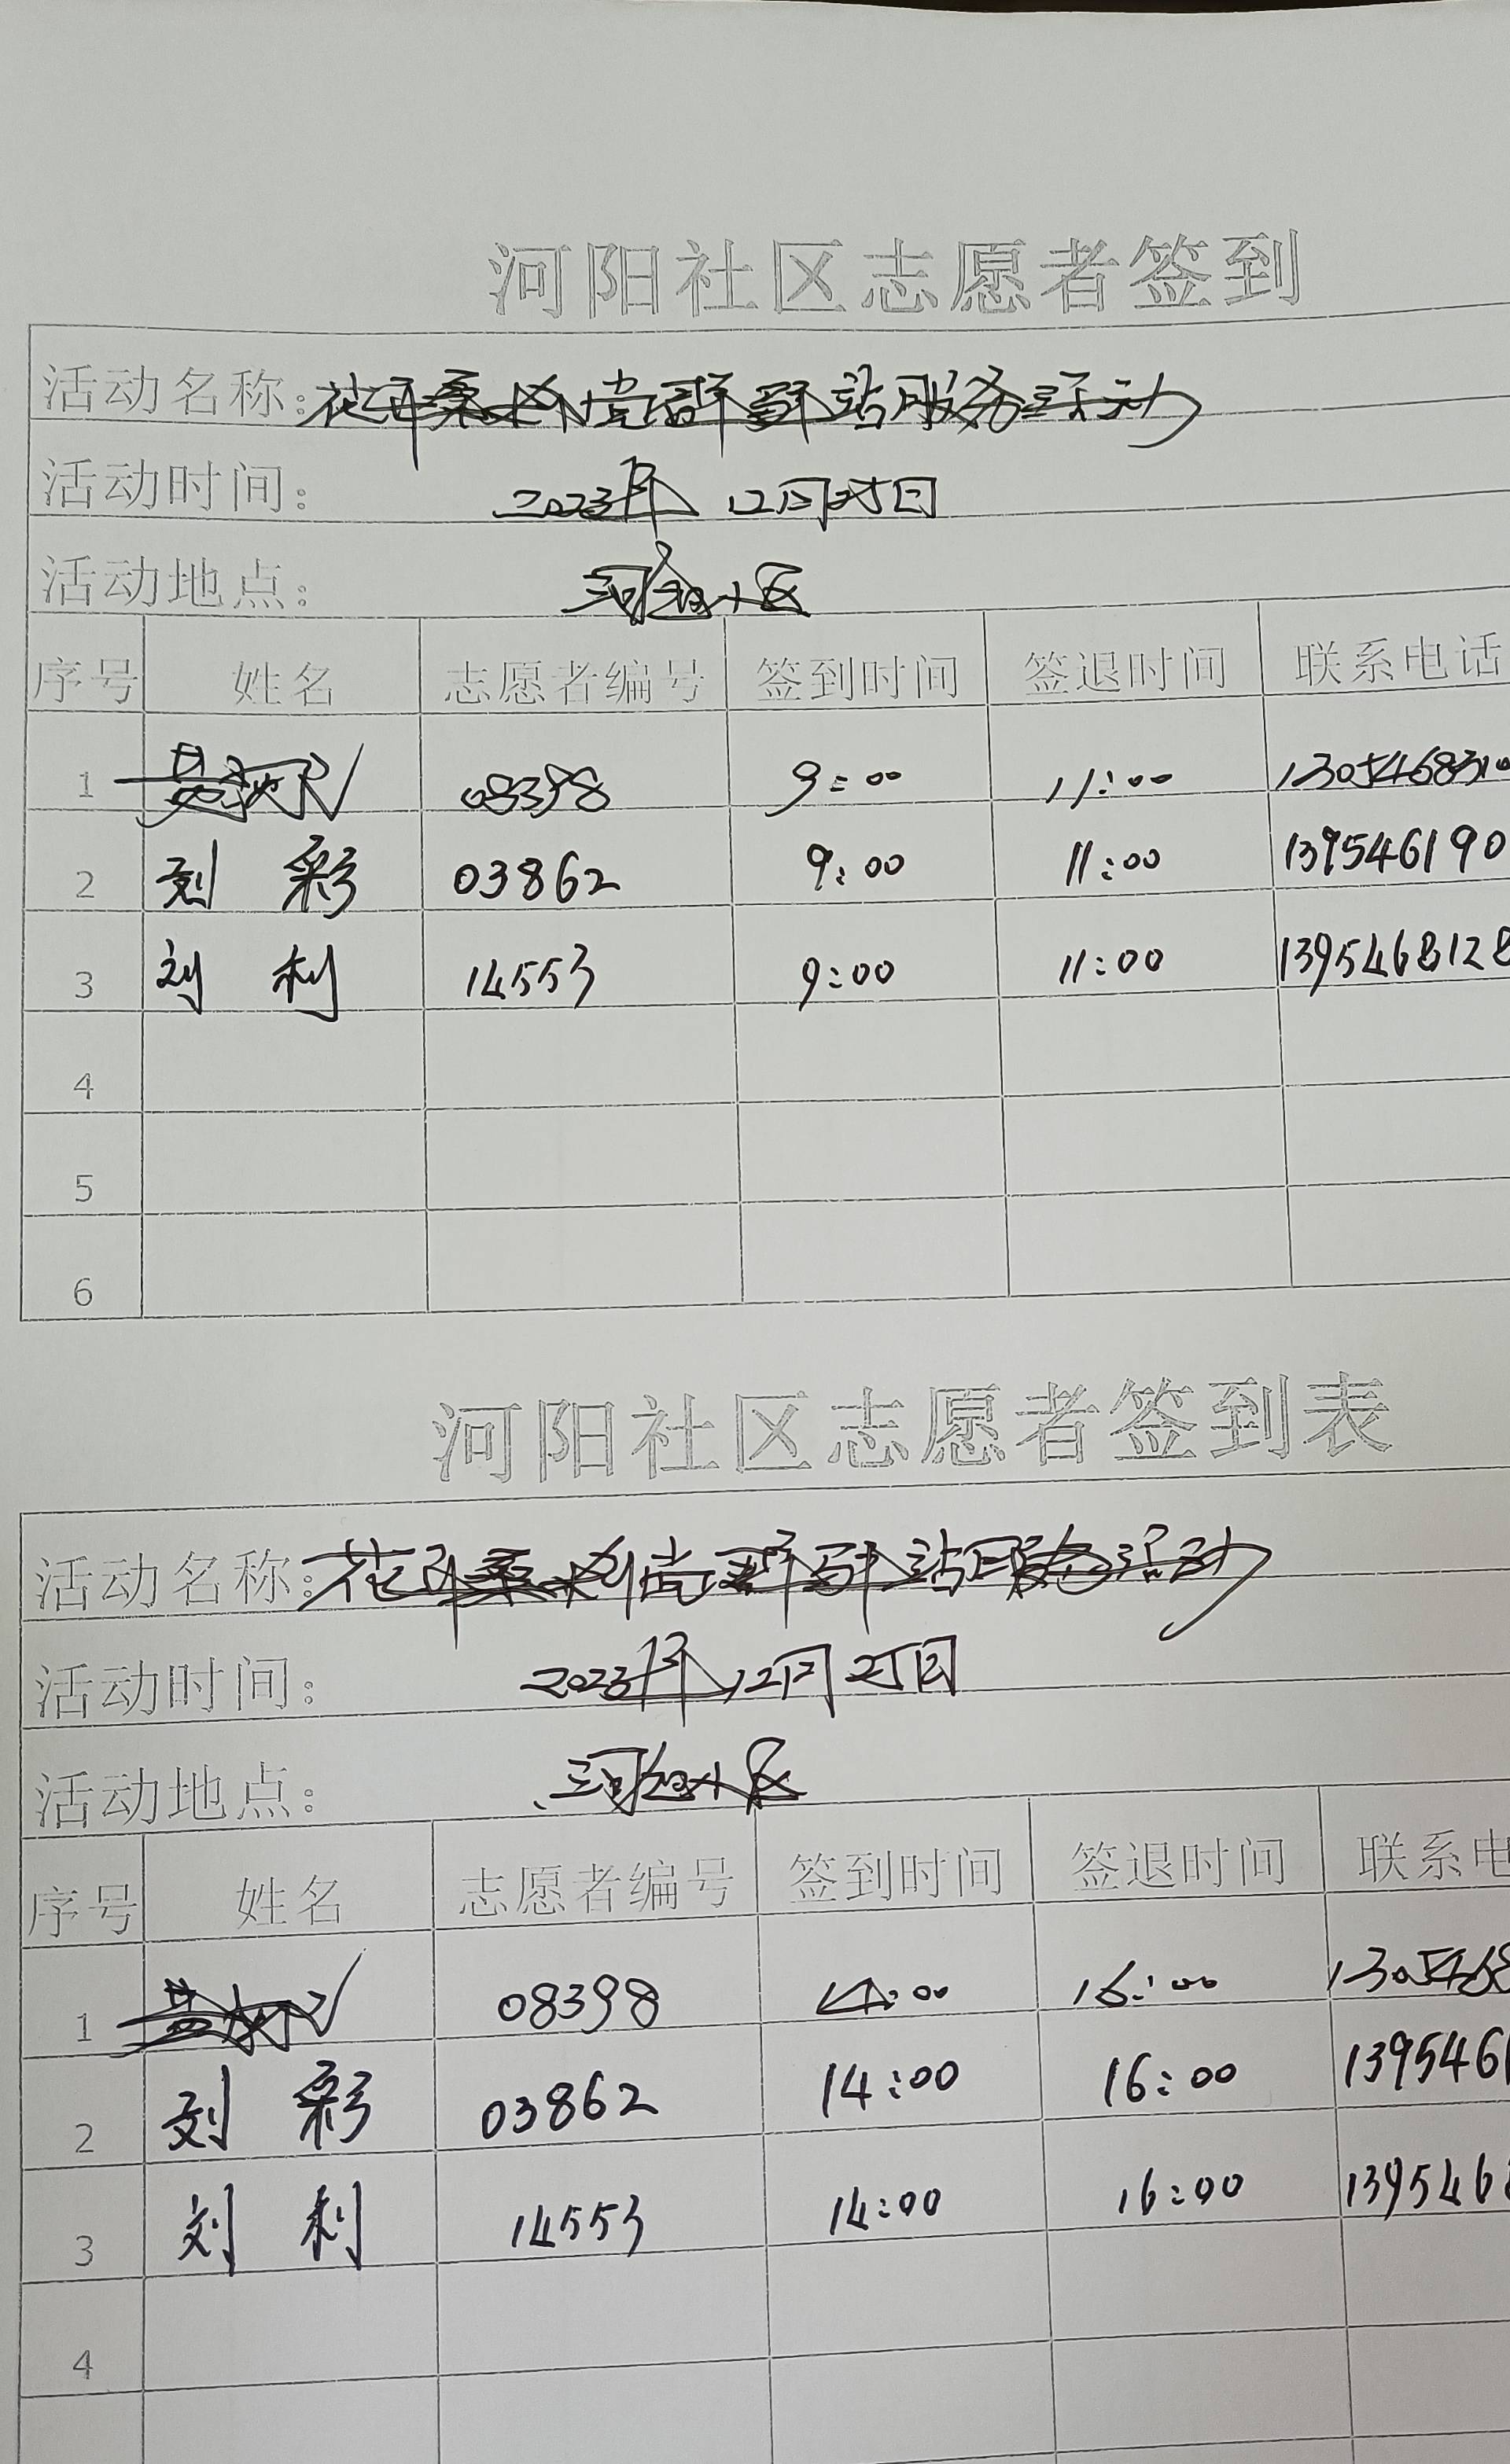 河阳社区志愿者签到
活动名称:花开桑榆党群驿站服务活动
活动时间: 2023年 12月 日
活动地点: 小区
序号 姓名 志愿者编号 签到时间 签退时间 联系电话
1 08398 9:00 11:00 13054683100
2 刘 彩 03862 9:00 11:00 139546190
3 刘 利 14553 9:00 11:00 1395468128
4
5
6
河阳社区志愿者签到表
活动名称:花开桑榆党群驿站服务活动
活动时间: 2023年12月 日
活动地点: 小区
序号 姓名 志愿者编号 签到时间 签退时间 联系电
1 08398 14:00 16:00 1305468
2 刘 彩 03862 14:00 16:00 1395461
3 刘 利 14553 14:00 16:00 139546
4